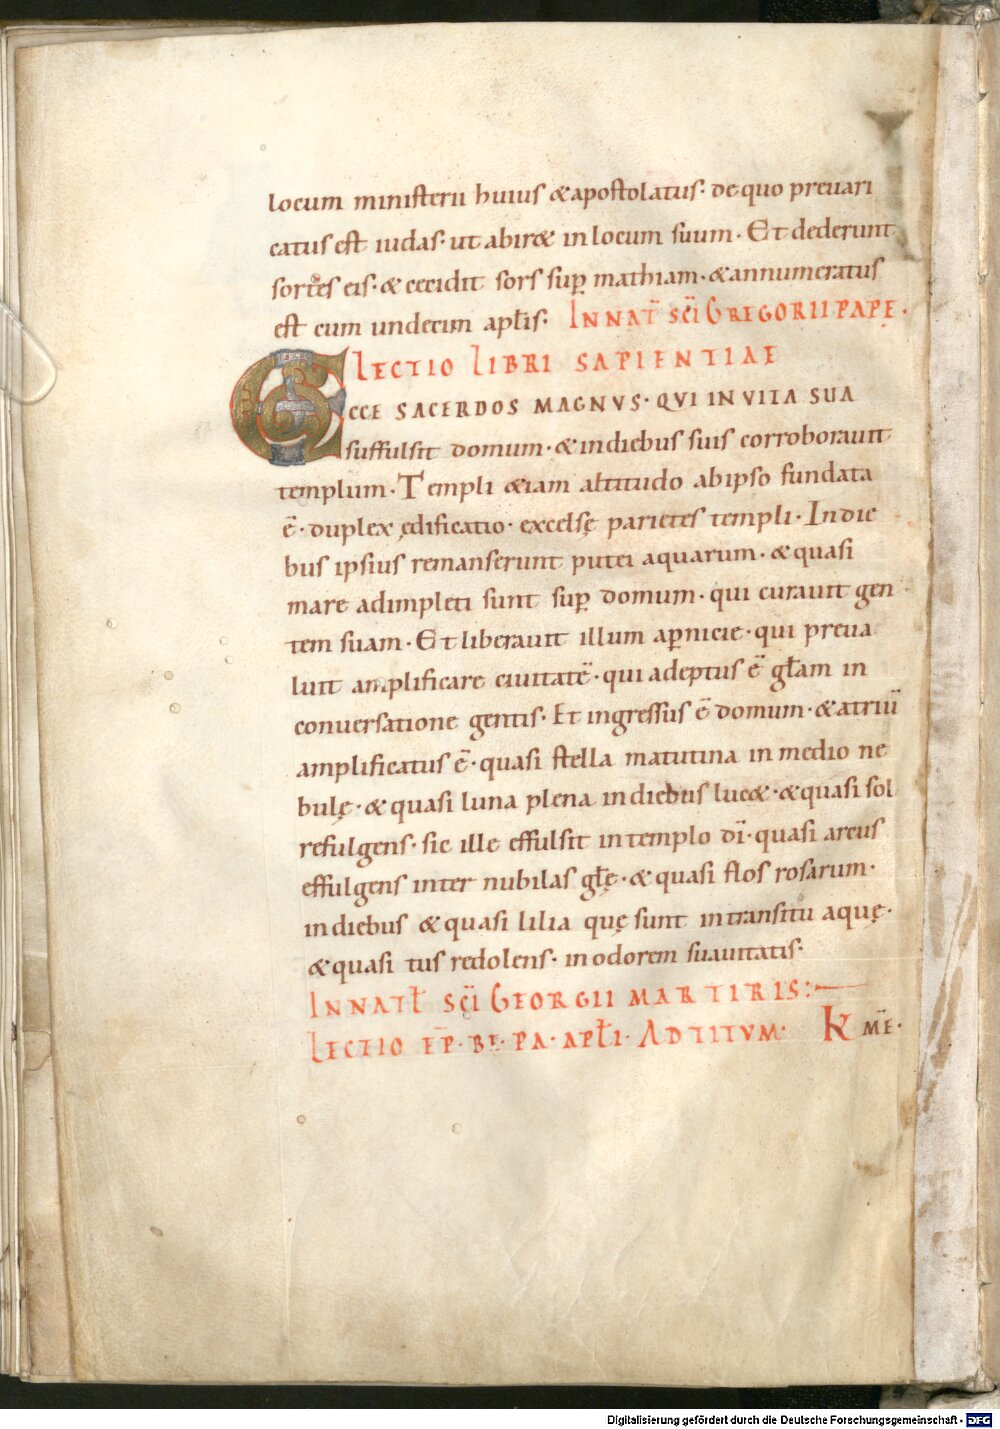 locum ministerii huius & apostolatus· de quo preuari
catus est iudas· ut abir& in locum suum· Et dederunt
sortes eis· & cecidit sors sup̄ mathiam· & annumeratus
est cum undecim apłis· IN NAT̄ SC̄I GREGORII PAPĘ·
LECTIO LIBRI SAPIENTIAE
ECCE SACERDOS MAGNVS· QVI IN VITA SUA
suffulsit domum· & in diebus suis corroborauit
templum· Templi &iam altitudo ab ipso fundata
ē· duplex ędificatio· excelsę pari&es templi· In die
bus ipsius remanserunt putei aquarum· & quasi
mare adimpleti sunt sup̄ domum· qui curauit gen
tem suam· Et liberauit illum a p̱nicie· qui preua
luit amplificare ciuitatē· qui adeptus ē głam in
conuersatione gentis· Et ingressus ē domum· & atriū
amplificatus ē· quasi stella matutina in medio ne
bulę· & quasi luna plena in diebus luc&· & quasi sol
refulgens· sic ille effulsit in templo dī· quasi arcus
effulgens inter nubilas głę· & quasi flos rosarum·
in diebus & quasi lilia quę sunt in transitu aquę·
& quasi tus redolens· in odorem suauitatis·
IN NATł SC̄I GEORGII MARTIRIS:
LECTIO EP̄· BE· PA· APłI· AD TITVM· K M̄E·
Digitalisierung gefördert durch die Deutsche Forschungsgemeinschaft - DFG